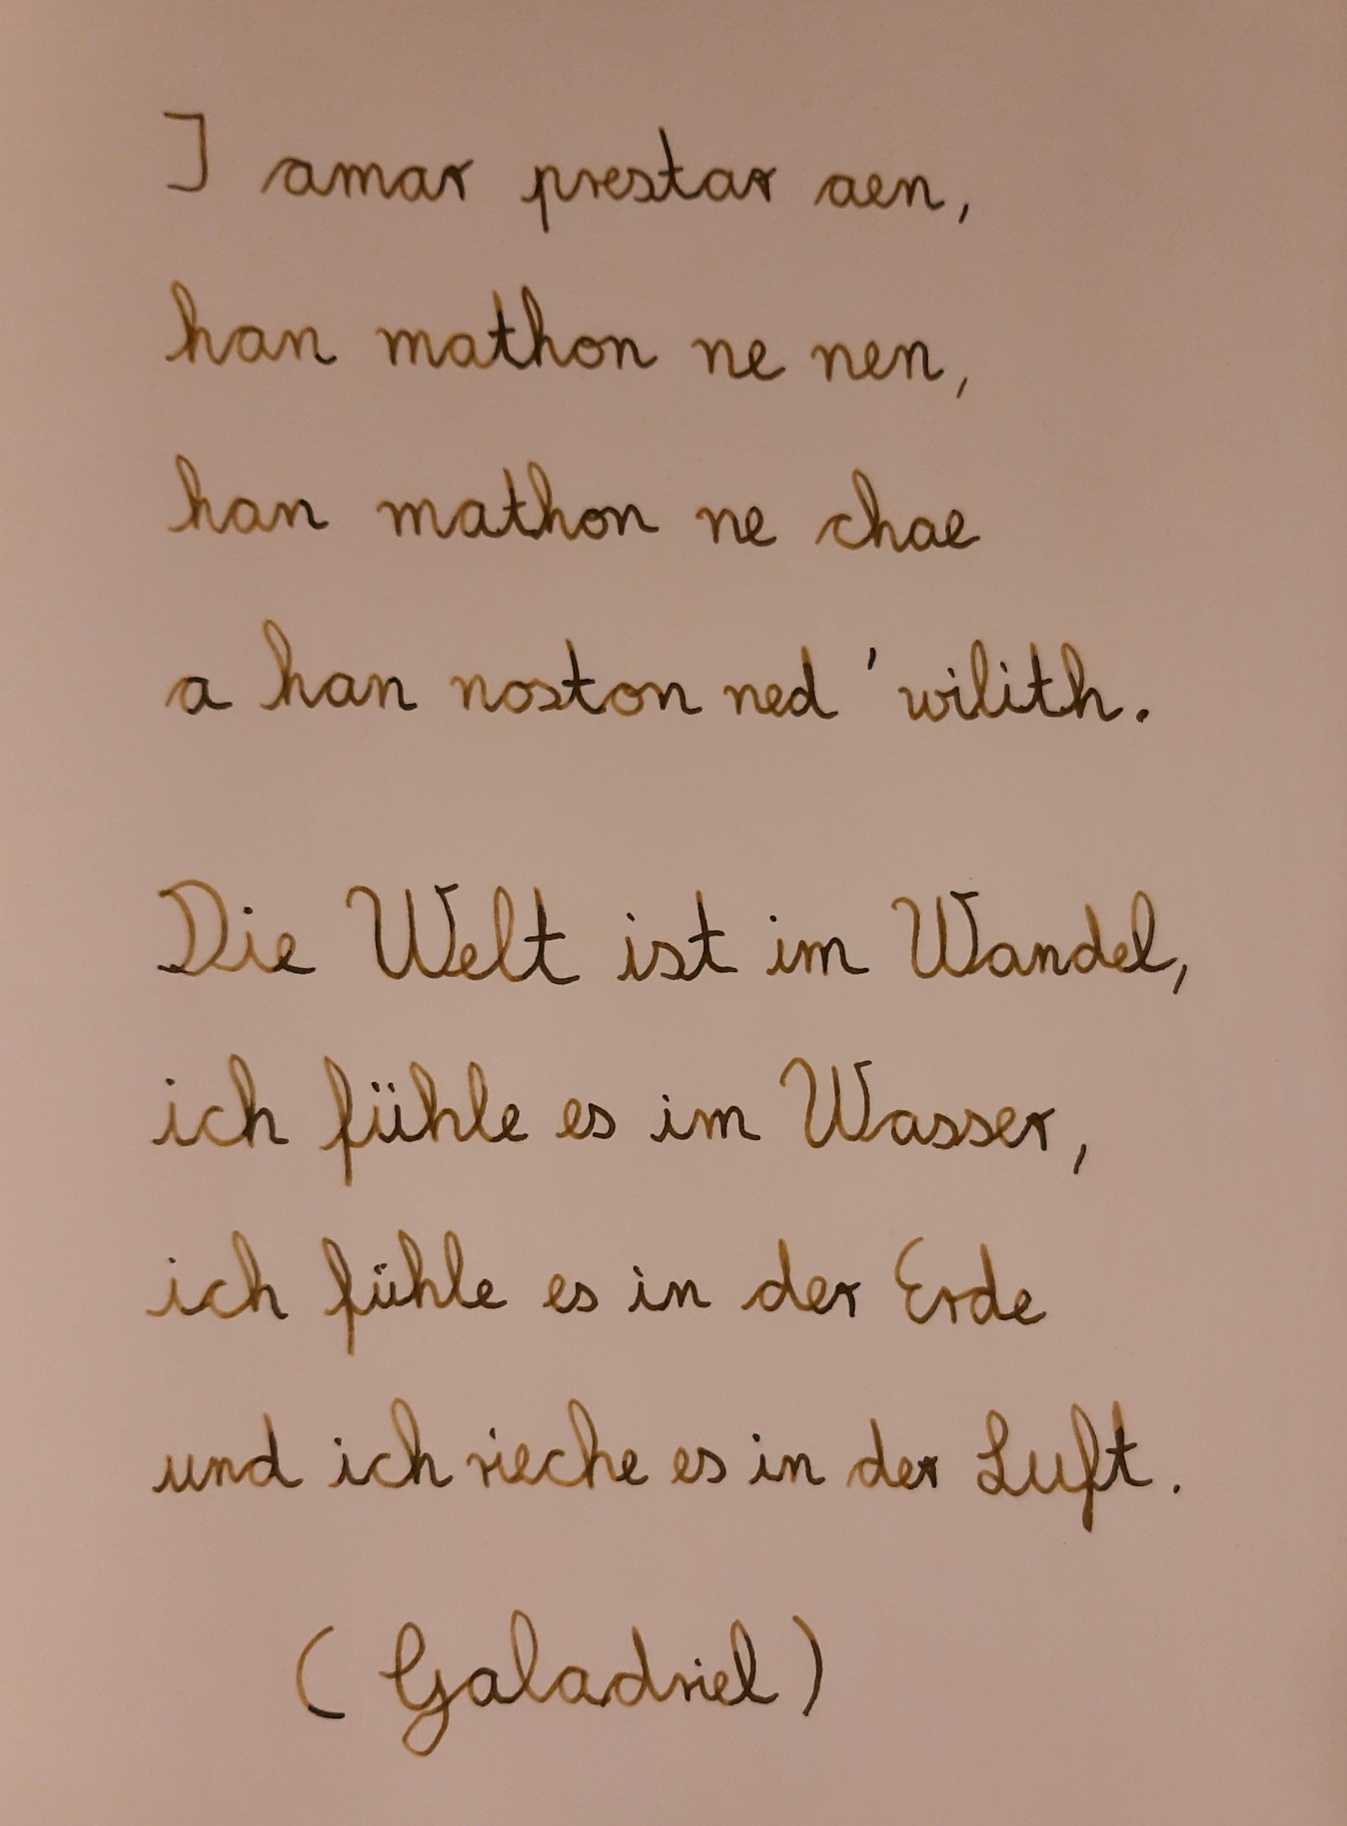 I amar prestar aen,
han mathon ne nen,
han mathon ne chae
a han noston ned 'wilith.
Die Welt ist im Wandel,
ich fühle es im Wasser,
ich fühle es in der Erde
und ich rieche es in der Luft.
(Galadriel)